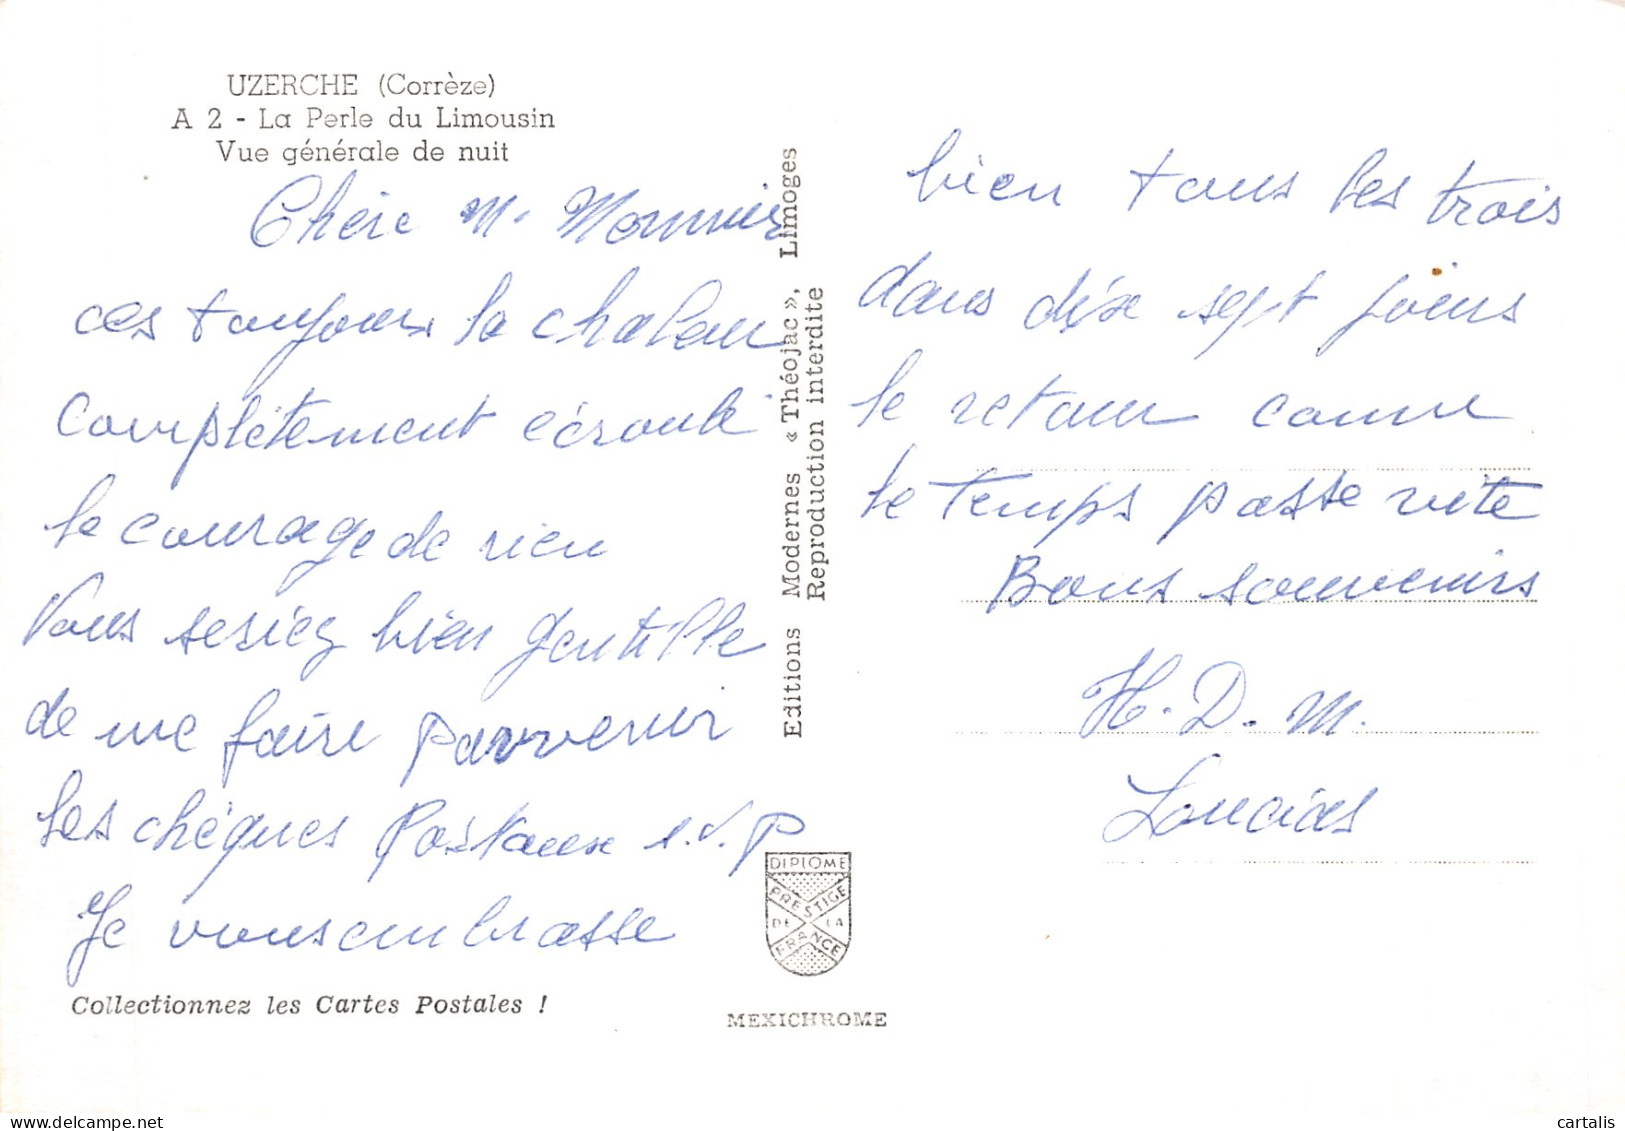 UZERCHE (Corrèze)
A 2 - La Perle du Limousin
Vue générale de nuit
Chère M. Monnier
ces toujours la chaleur
complètement écroulé
le courage de rien
Vous seriez bien gentille
de me faire parvenir
les chèques Postaux s.v.P
Je vous embrasse
Collectionnez les Cartes Postales !
Editions Modernes « Théojac », Limoges
Reproduction interdite
DIPLOME
PRESTIGE
DE LA
FRANCE
MEXICHROME
bien tous les trois
dans dix sept jours
le retour comme
le temps passe vite
Bons souvenirs
H. D. M.
cartalis